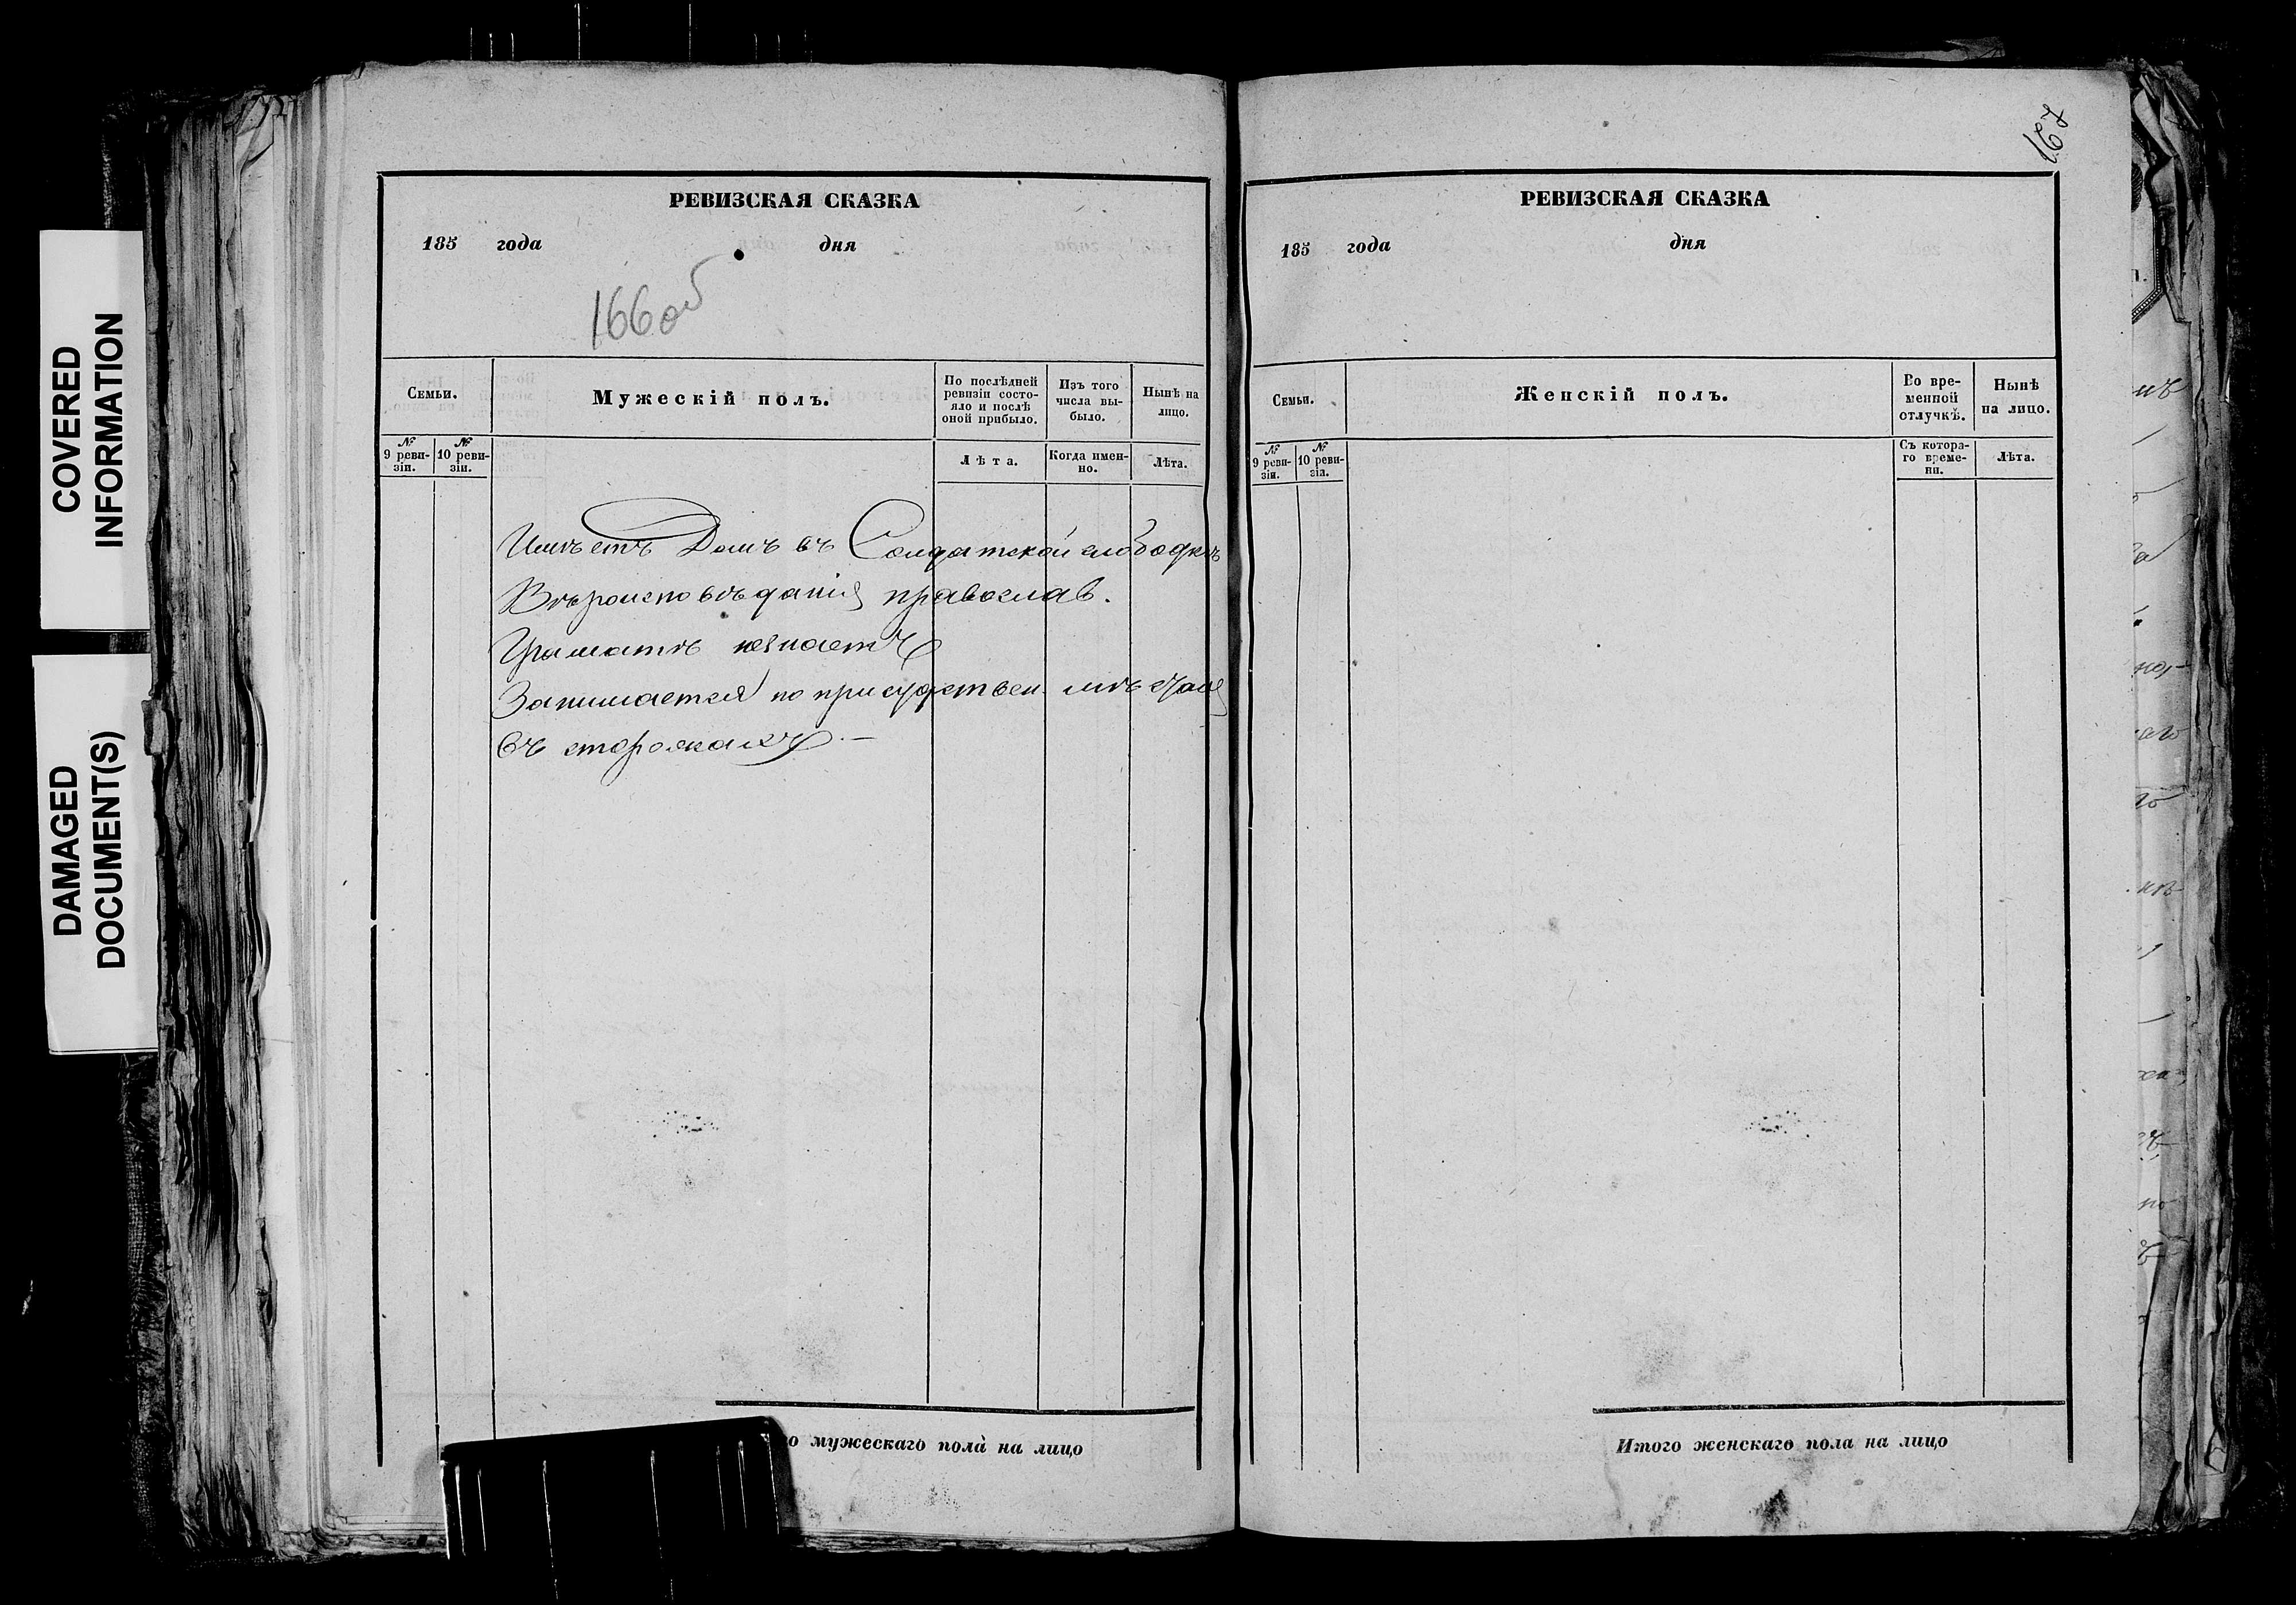 COVERED
INFORMATION
DAMAGED
DOCUMENT(S)
РЕВИЗСКАЯ СКАЗКА
185 года дня
166 об
Семьи.
Мужескій полъ.
По послѣдней
ревизіи состо-
яло и послѣ
оной прибыло.
Изъ того
числа вы-
было.
Нынѣ на
лицо.
№
9 реви-
зіи.
№
10 реви-
зіи.
Лѣта.
Когда имен-
но.
Лѣта.
Имѣетъ Домъ въ Солдатской слободкѣ
Вѣроисповѣданія православ.
Грамматѣ незнаетъ
Занимается по присудствен. мѣстамъ
въ сторожахъ. —
о мужескаго пола на лицо
167
РЕВИЗСКАЯ СКАЗКА
185 года дня
Семьи.
Женскій полъ.
Во вре-
менной
отлучкѣ.
Нынѣ
на лицо.
№
9 реви-
зіи.
№
10 реви-
зіи.
Съ котора-
го време-
ни.
Лѣта.
Итого женскаго пола на лицо